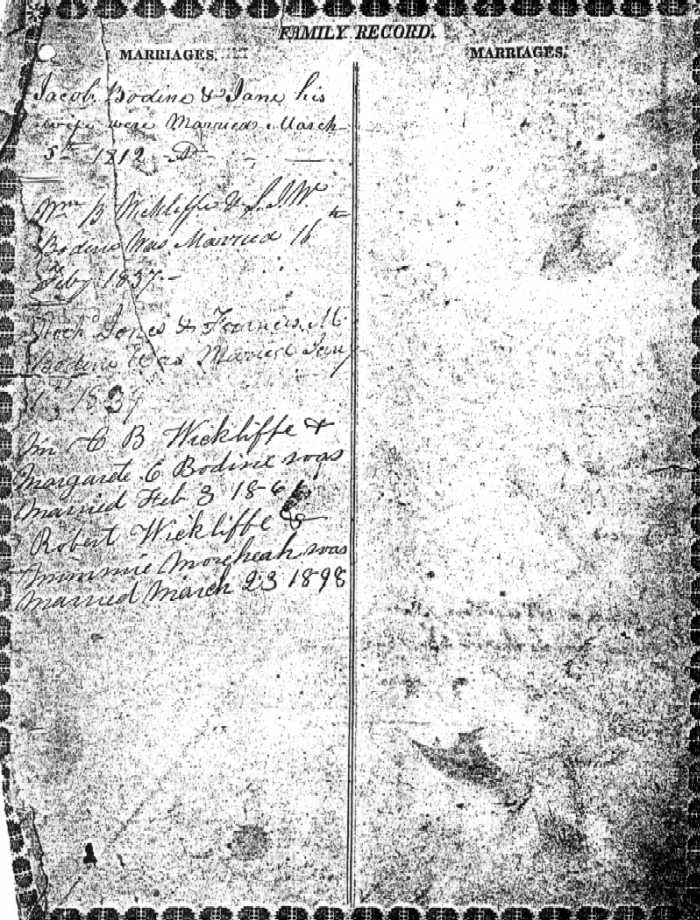 FAMILY RECORD.
MARRIAGES.
Jacob Bodine & Jane his
wife were Married March
5th 1812
Wm B Wickliffe &
Bodine Was Married 16th
Feby 1837
Jones & Frances M
Bodine Was Married Jany
183
C B Wickliffe &
Margarete C Bodine was
married Feb 3 186
Robert Wickliffe &
Moreheah was
married March 23 1898
MARRIAGES.